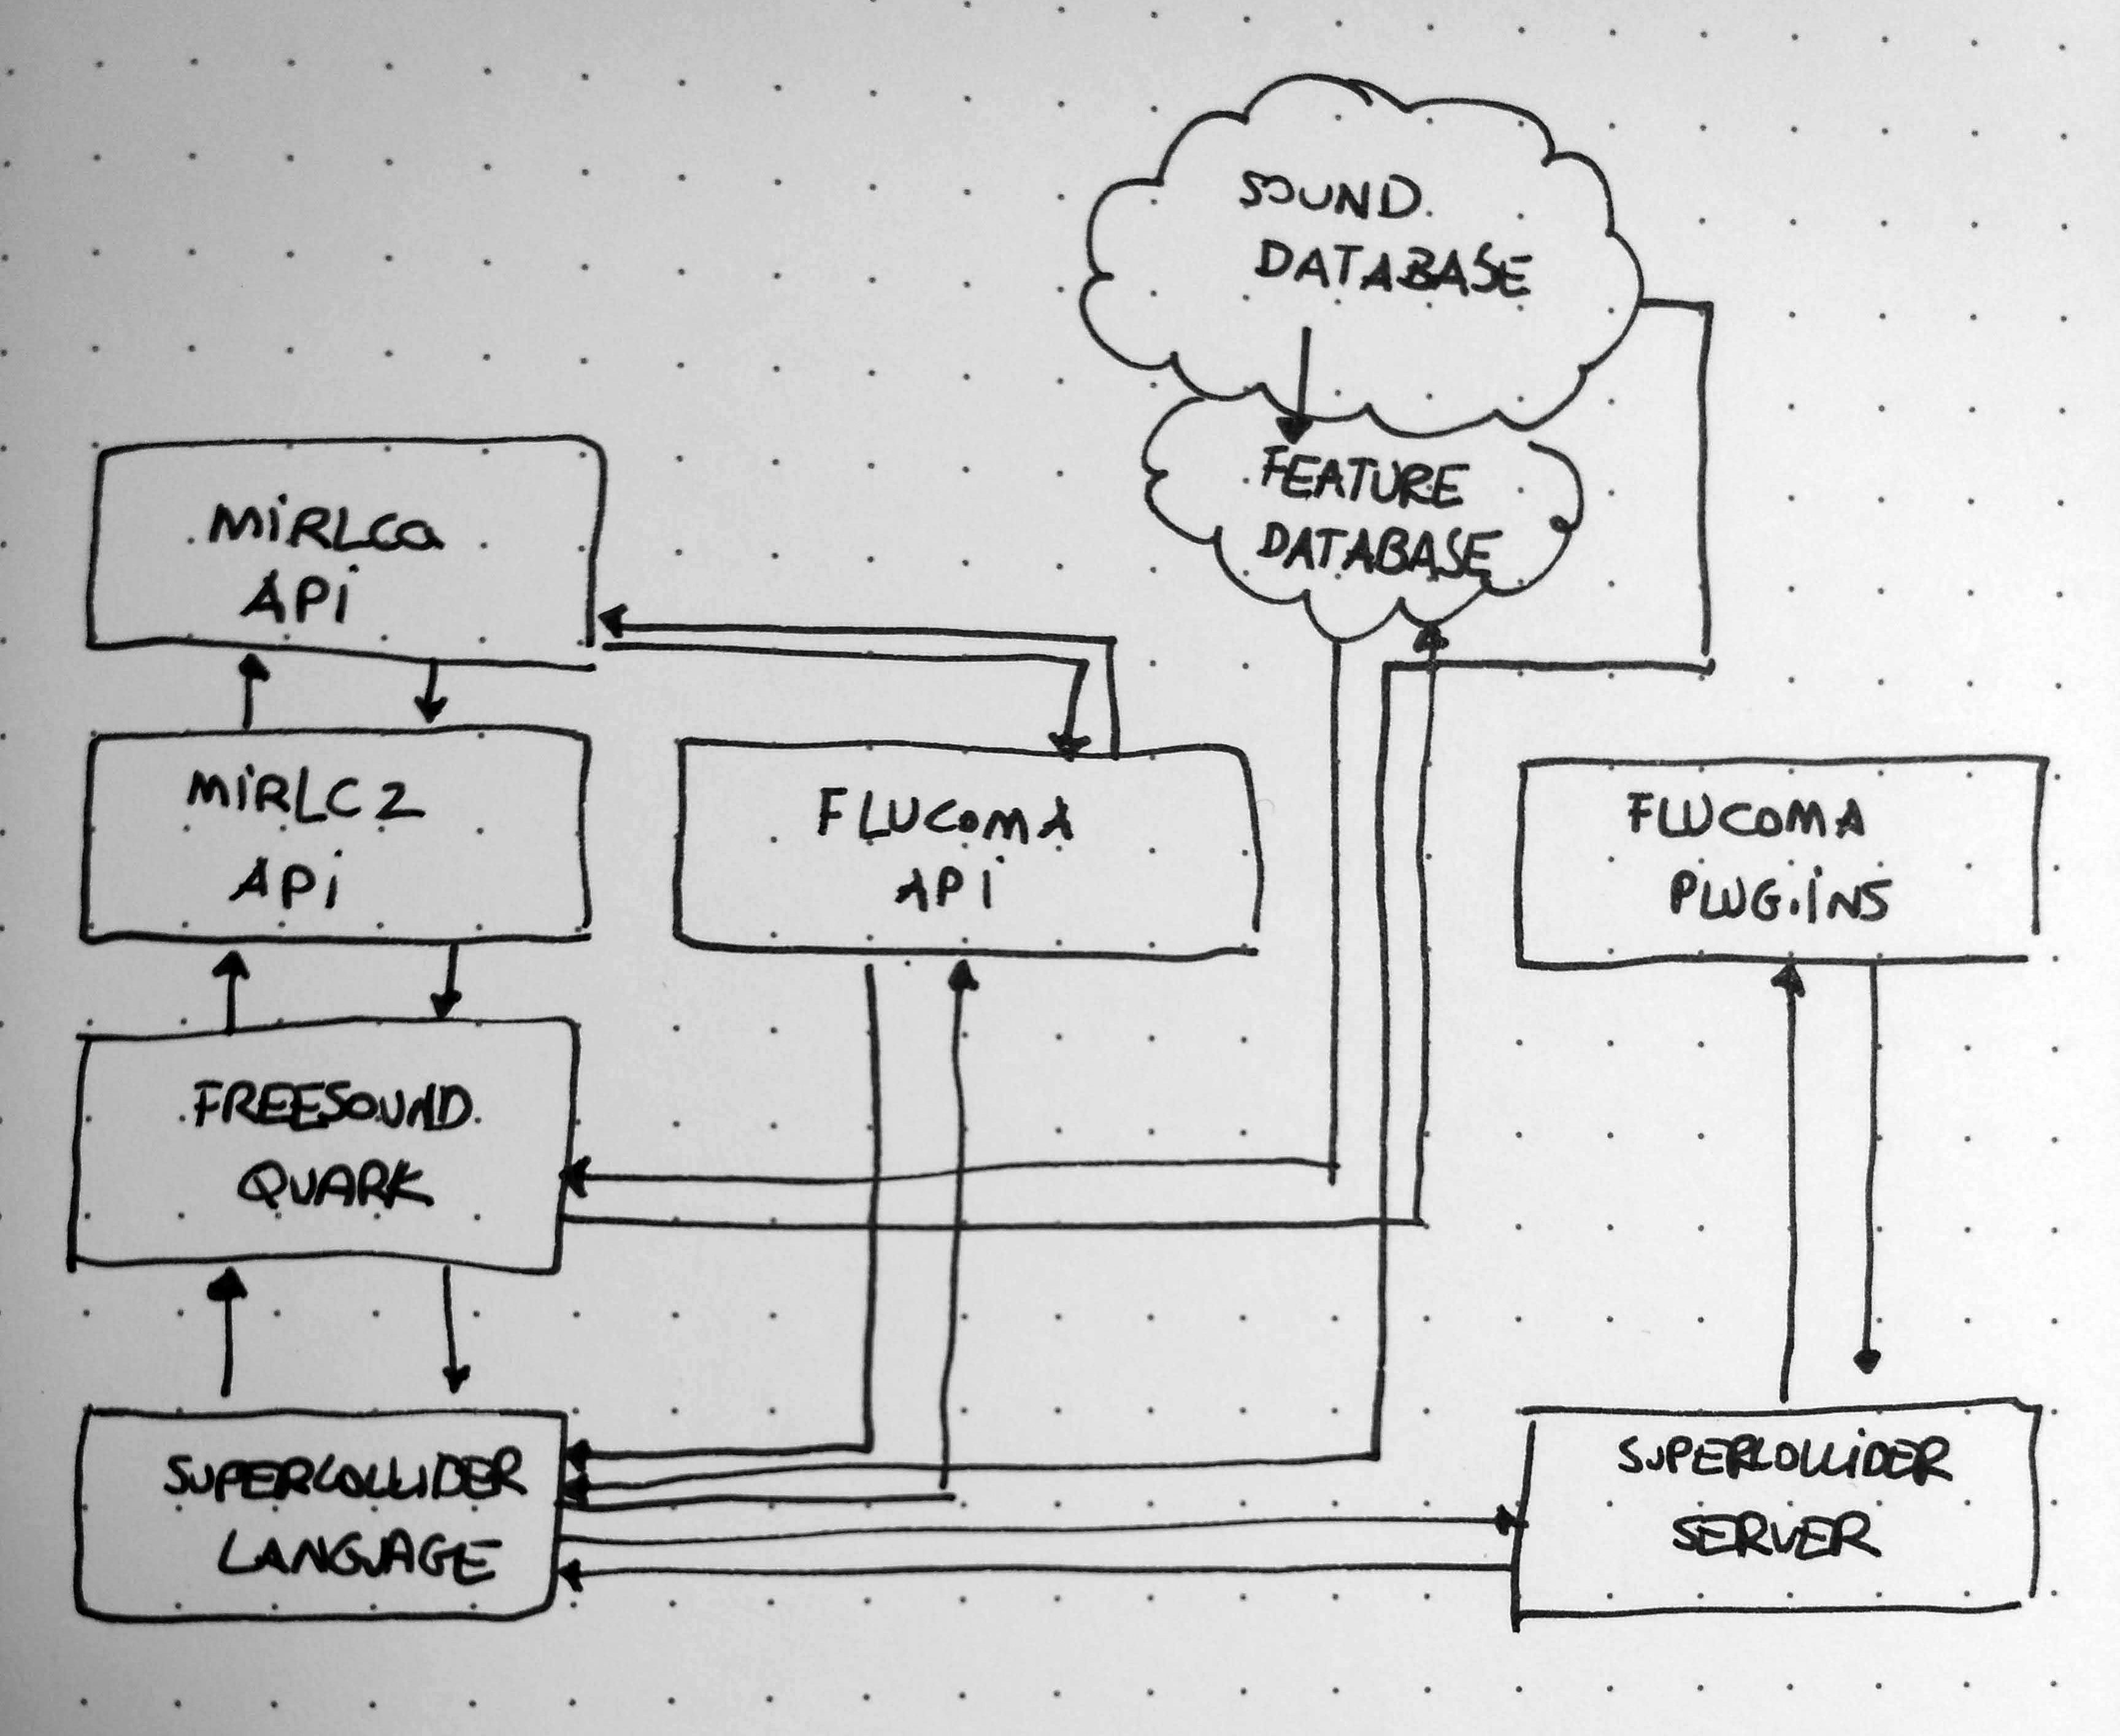 SOUND
DATABASE
FEATURE
DATABASE
MiRLCa
APi
MiRLC2
APi
FLUCOMA
APi
FLUCOMA
PLUG.iNS
FREESOUND
QUARK
SUPERCOLLiDER
LANGUAGE
SUPERCOLLiDER
SERVER